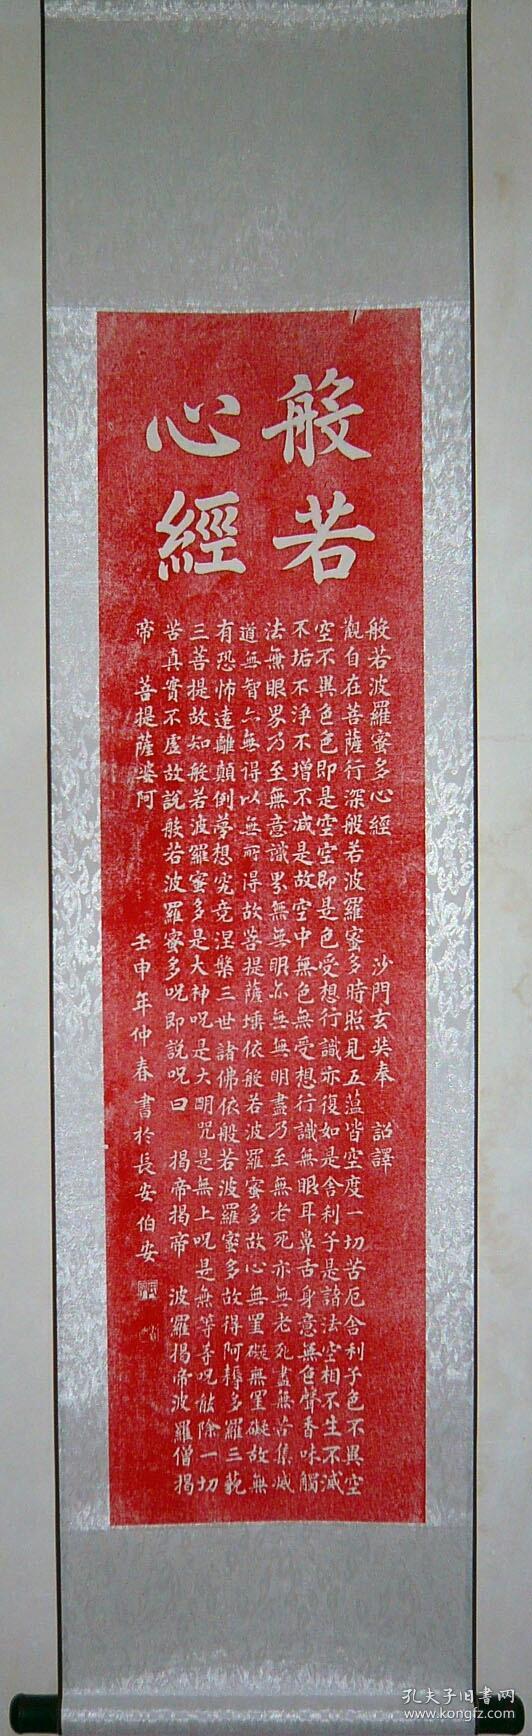 般若
心經
般若波羅蜜多心經　沙門玄奘奉　詔譯
觀自在菩薩行深般若波羅蜜多時照見五蕰皆空度一切苦厄舍利子色不異空
空不異色色即是空空即是色受想行識亦復如是舍利子是諸法空相不生不滅
不垢不淨不增不減是故空中無色無受想行識無眼耳鼻舌身意無色聲香味觸
法無眼界乃至無意識界無無明亦無無明盡乃至無老死亦無老死盡無苦集滅
道無智亦無得以無所得故菩提薩埵依般若波羅蜜多故心無罣礙無罣礙故無
有恐怖遠離顛倒夢想究竟涅槃三世諸佛依般若波羅蜜多故得阿耨多羅三藐
三菩提故知般若波羅蜜多是大神呪是大明咒是無上呪是無等等呪能除一切
苦真實不虛故說般若波羅蜜多呪即說呪曰　揭帝揭帝　波羅揭帝波羅僧揭
帝　菩提薩婆阿
壬申年仲春書於長安伯安
孔夫子旧書网
www.kongfz.com